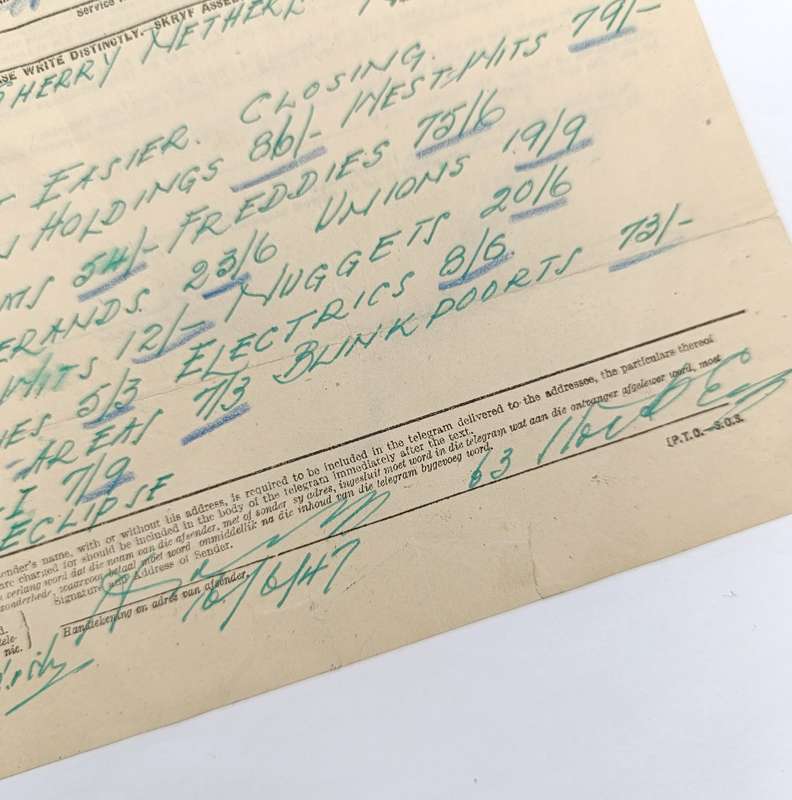 Service
ASE WRITE DISTINCTLY.—SKRYF ASSEB
PHERRY NETHERL
EASIER. CLOSING.
HOLDINGS 86/- WEST WITS 79/-
MS 54/- FREDDIES 75/6
ERANDS. 23/6 UNIONS 19/9
WITS 12/- NUGGETS 20/6
IES 5/3 ELECTRICS 8/6.
AREAS 7/3 BLINKPOORTS 73/-
I 7/9
ECLIPSE
ender's name, with or without his address, is required to be included in the telegram delivered to the addressee, the particulars thereof
are charged for should be included in the body of the telegram immediately after the text.
verlang word dat die naam van die afsender, met of sonder sy adres, ingesluit moet word in die telegram wat aan die ontvanger afgelewer word, moet
sonderhede, waarvoor betaal moet word onmiddellik na die inhoud van die telegram bygevoeg word.
Signature and Address of Sender.
Handtekening en adres van afsender,
[P.T.O.—S.O.S.
63
/6/47
d.
tele-
nie.